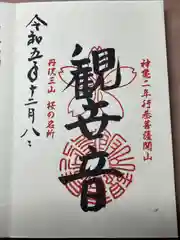 神亀二年行基菩薩開山
観世音
丹沢三山 桜の名所
令和五年十二月八日